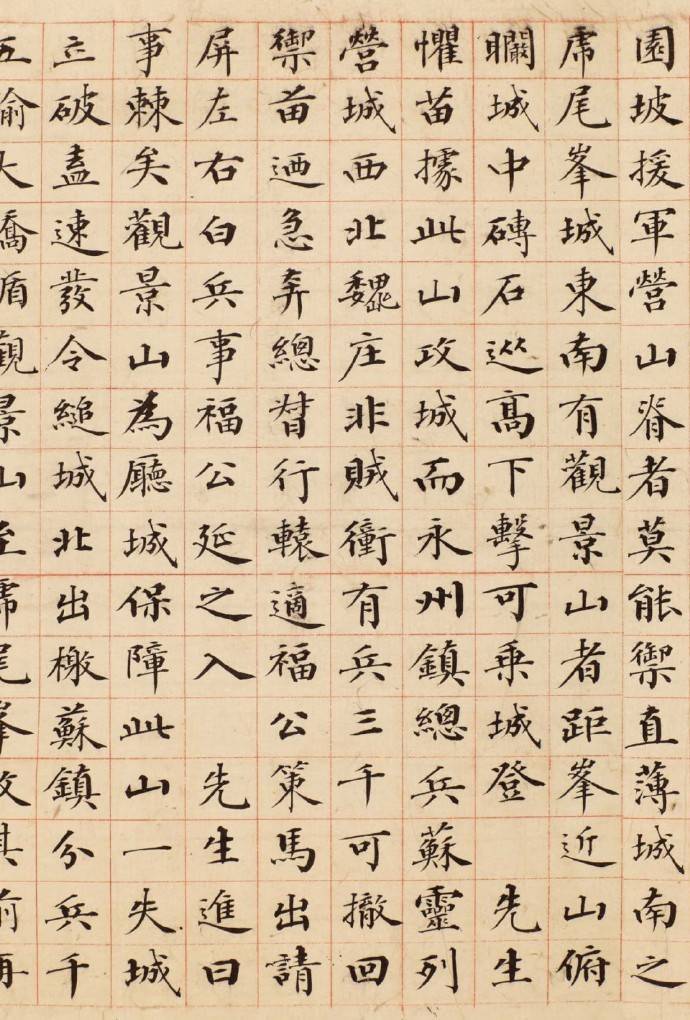 園坡援軍營山脊者莫能禦直薄城南之
虎尾峯城東南有觀景山者距峯近山俯
瞷城中磚石巡高下擊可乘城登先生
懼苗據此山攻城而永州鎮總兵蘇靈列
營城西北魏庄非賊衝有兵三千可撤回
禦苗迺急奔總督行轅適福公策馬出請
屏左右白兵事福公延之入先生進曰
事棘矣觀景山為廳城保障此山一失城
立破盍速發令縋城北出檄蘇鎮分兵千
五